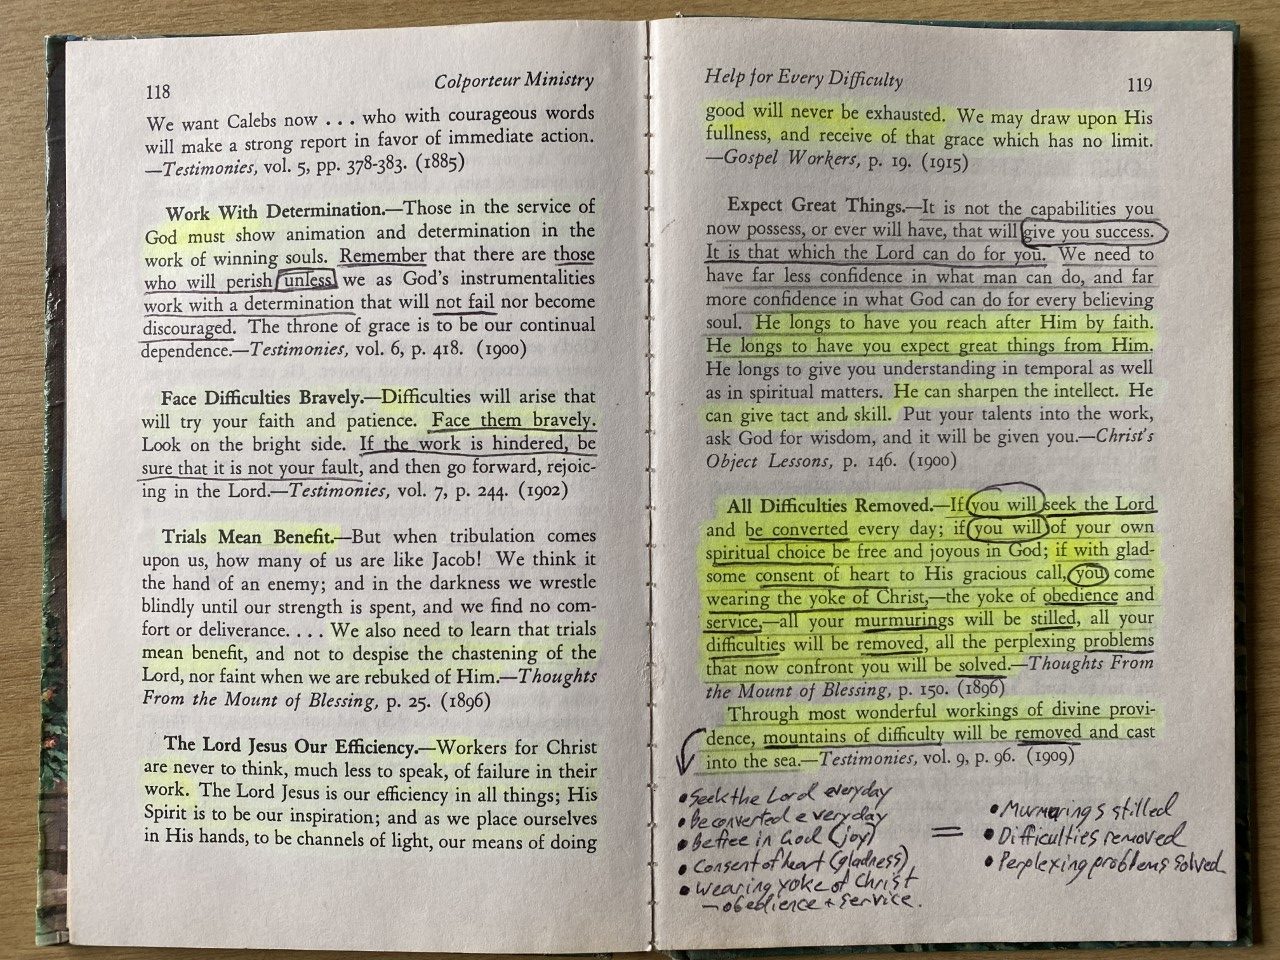 118
Colporteur Ministry
We want Calebs now . . . who with courageous words
will make a strong report in favor of immediate action.
—Testimonies, vol. 5, pp. 378-383. (1885)
Work With Determination.—Those in the service of
God must show animation and determination in the
work of winning souls. Remember that there are those
who will perish unless we as God's instrumentalities
work with a determination that will not fail nor become
discouraged. The throne of grace is to be our continual
dependence.—Testimonies, vol. 6, p. 418. (1900)
Face Difficulties Bravely.—Difficulties will arise that
will try your faith and patience. Face them bravely.
Look on the bright side. If the work is hindered, be
sure that it is not your fault, and then go forward, rejoic-
ing in the Lord.—Testimonies, vol. 7, p. 244. (1902)
Trials Mean Benefit.—But when tribulation comes
upon us, how many of us are like Jacob! We think it
the hand of an enemy; and in the darkness we wrestle
blindly until our strength is spent, and we find no com-
fort or deliverance. . . . We also need to learn that trials
mean benefit, and not to despise the chastening of the
Lord, nor faint when we are rebuked of Him.—Thoughts
From the Mount of Blessing, p. 25. (1896)
The Lord Jesus Our Efficiency.—Workers for Christ
are never to think, much less to speak, of failure in their
work. The Lord Jesus is our efficiency in all things; His
Spirit is to be our inspiration; and as we place ourselves
in His hands, to be channels of light, our means of doing
Help for Every Difficulty
119
good will never be exhausted. We may draw upon His
fullness, and receive of that grace which has no limit.
—Gospel Workers, p. 19. (1915)
Expect Great Things.—It is not the capabilities you
now possess, or ever will have, that will give you success.
It is that which the Lord can do for you. We need to
have far less confidence in what man can do, and far
more confidence in what God can do for every believing
soul. He longs to have you reach after Him by faith.
He longs to have you expect great things from Him.
He longs to give you understanding in temporal as well
as in spiritual matters. He can sharpen the intellect. He
can give tact and skill. Put your talents into the work,
ask God for wisdom, and it will be given you.—Christ's
Object Lessons, p. 146. (1900)
All Difficulties Removed.—If you will seek the Lord
and be converted every day; if you will of your own
spiritual choice be free and joyous in God; if with glad-
some consent of heart to His gracious call, you come
wearing the yoke of Christ,—the yoke of obedience and
service,—all your murmurings will be stilled, all your
difficulties will be removed, all the perplexing problems
that now confront you will be solved.—Thoughts From
the Mount of Blessing, p. 150. (1896)
Through most wonderful workings of divine provi-
dence, mountains of difficulty will be removed and cast
into the sea.—Testimonies, vol. 9, p. 96. (1909)
• Seek the Lord everyday
• Be converted everyday
• Be free in God (joy)
• Consent of heart (gladness)
• Wearing yoke of Christ
– obedience + service.
=
• Murmurings stilled
• Difficulties removed
• Perplexing problems solved